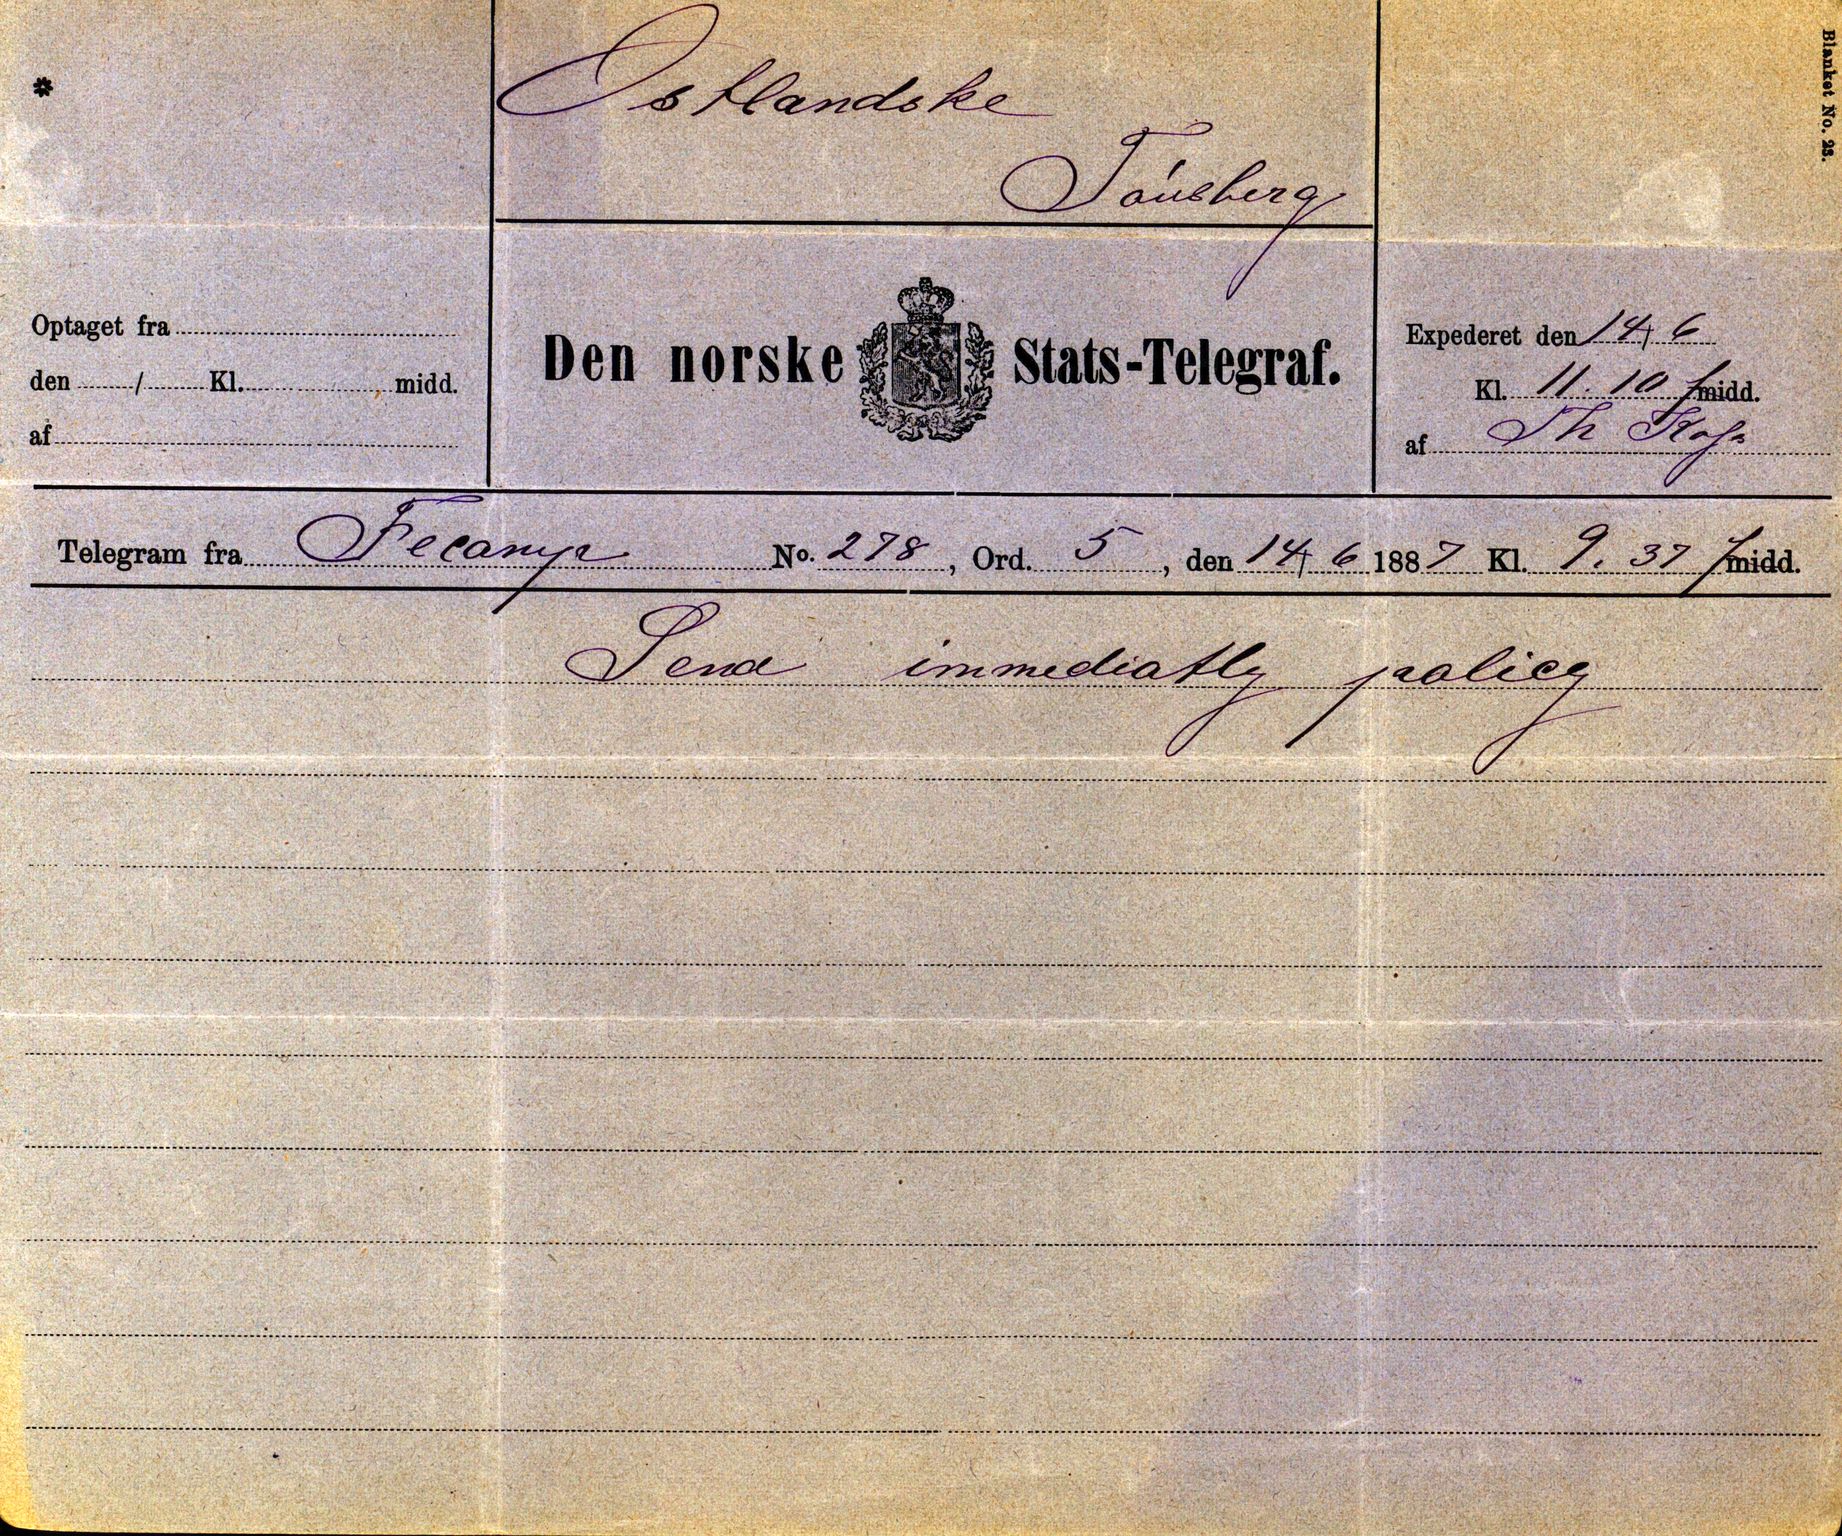 Blanket No. 23.
*
Ostlandske
Tønsberg
Optaget fra
den / Kl. midd.
af
Den norske Stats-Telegraf.
Expederet den 14/6
Kl. 11.10 f midd.
af Th
Telegram fra Fecamp No. 278, Ord. 5, den 14/6 1887 Kl. 9.37 f midd.
Send immediatly policy